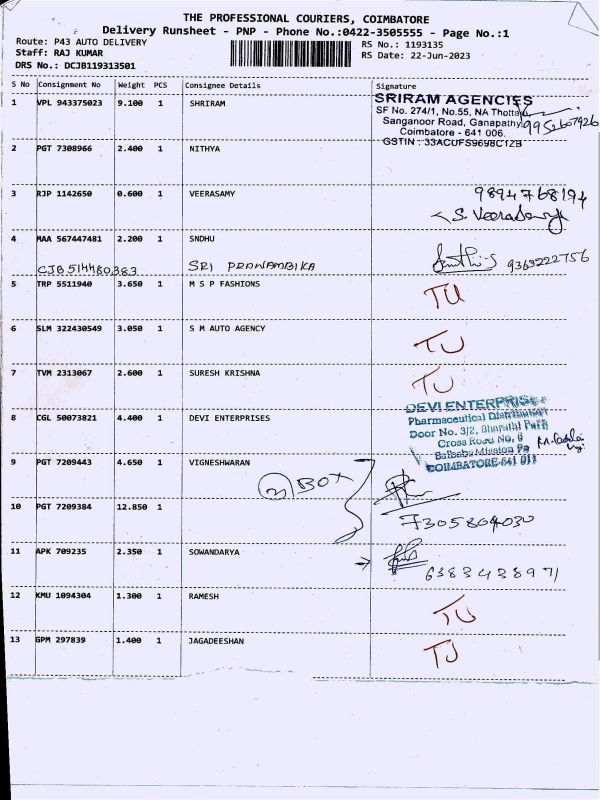 THE PROFESSIONAL COURIERS, COIMBATORE
Delivery Runsheet - PNP - Phone No.:0422-3505555 - Page No.:1
Route: P43 AUTO DELIVERY
RS No.: 1193135
Staff: RAJ KUMAR
RS Date: 22-Jun-2023
DRS No.: DCJB119313501
S No Consignment No Weight PCS Consignee Details Signature
1 VPL 943375023 9.100 1 SHRIRAM
SRIRAM AGENCIES
SF No. 274/1, No.55, NA Thottam
Sanganoor Road, Ganapathy
9952607926
Coimbatore - 641 006.
GSTIN : 33ACUFS9698C1ZB
2 PGT 7308966 2.400 1 NITHYA
3 RJP 1142650 0.600 1 VEERASAMY
9894768194
S. Veerasamy
4 MAA 567447481 2.200 1 SNDHU
9363222756
CJB514480383 SRI PRANAMBIKA
5 TRP 5511940 3.650 1 M S P FASHIONS
TU
6 SLM 322430549 3.050 1 S M AUTO AGENCY
TU
7 TVM 2313067 2.600 1 SURESH KRISHNA
TU
8 CGL 50073821 4.400 1 DEVI ENTERPRISES
DEVI ENTERPRISE
Pharmaceutical Distributor
Door No. 3/2, Bharathi Park
Cross Road No, 6
Saibaba Mission Po
COIMBATORE-641 011
9 PGT 7209443 4.650 1 VIGNESHWARAN
2 BOX
10 PGT 7209384 12.850 1
7305804030
11 APK 709235 2.350 1 SOWANDARYA
6383438971
12 KMU 1094304 1.300 1 RAMESH
TU
13 GPM 297839 1.400 1 JAGADEESHAN
TU